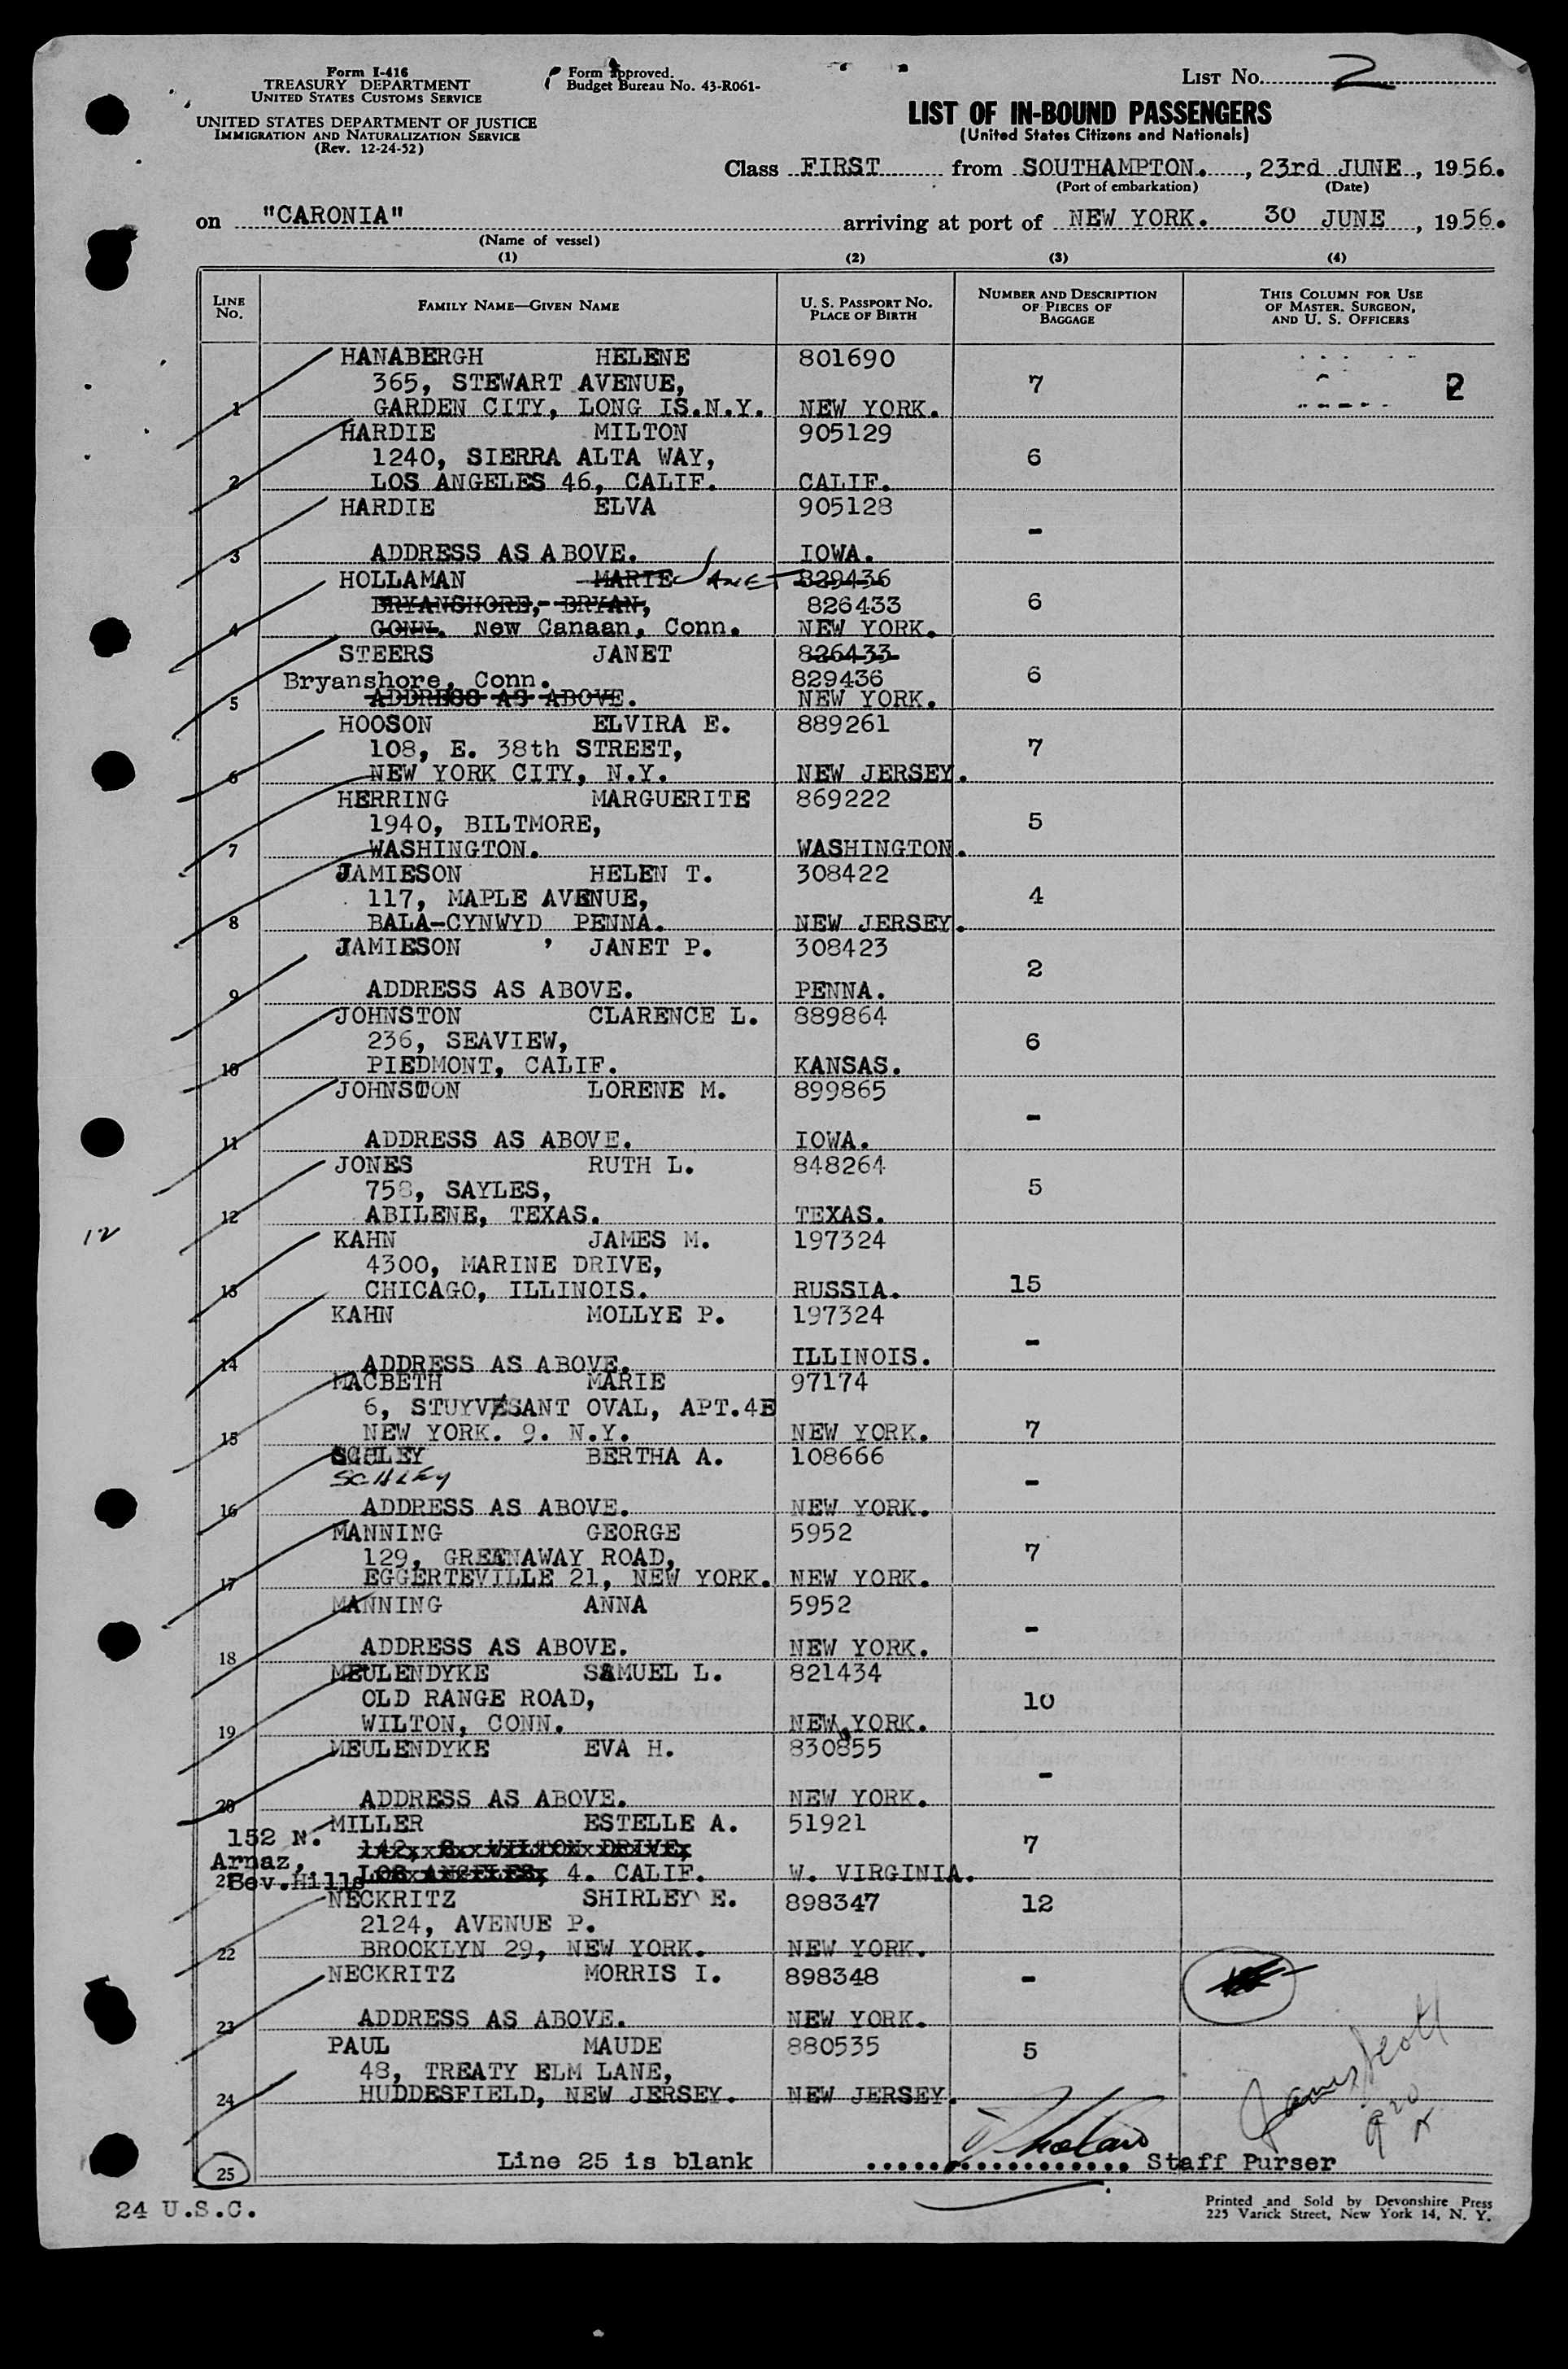 Form I-416
TREASURY DEPARTMENT
UNITED STATES CUSTOMS SERVICE
UNITED STATES DEPARTMENT OF JUSTICE
IMMIGRATION AND NATURALIZATION SERVICE
(Rev. 12-24-52)
Form approved.
Budget Bureau No. 43-R061-
LIST No. 2
LIST OF IN-BOUND PASSENGERS
(United States Citizens and Nationals)
Class FIRST from SOUTHAMPTON. , 23rd JUNE , 1956.
(Port of embarkation) (Date)
on "CARONIA" arriving at port of NEW YORK. 30 JUNE , 1956.
(Name of vessel)
(1) (2) (3) (4)
LINE No. FAMILY NAME—GIVEN NAME U. S. PASSPORT No. PLACE OF BIRTH NUMBER AND DESCRIPTION OF PIECES OF BAGGAGE THIS COLUMN FOR USE OF MASTER, SURGEON, AND U. S. OFFICERS
HANABERGH HELENE 801690
365, STEWART AVENUE, 7 2
1 GARDEN CITY, LONG IS.N.Y. NEW YORK.
HARDIE MILTON 905129
1240, SIERRA ALTA WAY, 6
2 LOS ANGELES 46, CALIF. CALIF.
HARDIE ELVA 905128
-
3 ADDRESS AS ABOVE. IOWA.
HOLLAMAN MARIE JANET 829436
BRYANSHORE, BRYAN, 826433 6
4 CONN. New Canaan, Conn. NEW YORK.
STEERS JANET 826433
Bryanshore, Conn. 829436 6
5 ADDRESS AS ABOVE. NEW YORK.
HOOSON ELVIRA E. 889261
108, E. 38th STREET, 7
6 NEW YORK CITY, N.Y. NEW JERSEY.
HERRING MARGUERITE 869222
1940, BILTMORE, 5
7 WASHINGTON. WASHINGTON.
JAMIESON HELEN T. 308422
117, MAPLE AVENUE, 4
8 BALA-CYNWYD PENNA. NEW JERSEY.
JAMIESON ' JANET P. 308423
2
9 ADDRESS AS ABOVE. PENNA.
JOHNSTON CLARENCE L. 889864
236, SEAVIEW, 6
10 PIEDMONT, CALIF. KANSAS.
JOHNSTON LORENE M. 899865
-
11 ADDRESS AS ABOVE. IOWA.
JONES RUTH L. 848264
758, SAYLES, 5
12 ABILENE, TEXAS. TEXAS.
12
KAHN JAMES M. 197324
4300, MARINE DRIVE,
13 CHICAGO, ILLINOIS. RUSSIA. 15
KAHN MOLLYE P. 197324
-
14 ADDRESS AS ABOVE. ILLINOIS.
MACBETH MARIE 97174
6, STUYVESANT OVAL, APT.4E
15 NEW YORK. 9. N.Y. NEW YORK. 7
SCHLEY BERTHA A. 108666
SCHLEY -
16 ADDRESS AS ABOVE. NEW YORK.
MANNING GEORGE 5952
129, GREENAWAY ROAD, 7
17 EGGERTEVILLE 21, NEW YORK. NEW YORK.
MANNING ANNA 5952
-
18 ADDRESS AS ABOVE. NEW YORK.
MEULENDYKE SAMUEL L. 821434
OLD RANGE ROAD, 10
19 WILTON, CONN. NEW YORK.
MEULENDYKE EVA H. 830855
-
20 ADDRESS AS ABOVE. NEW YORK.
MILLER ESTELLE A. 51921
152 N. 142, S. WILTON DRIVE, 7
Arnaz, LOS ANGELES, 4. CALIF. W. VIRGINIA.
21 Bev.Hills
NECKRITZ SHIRLEY E. 898347 12
2124, AVENUE P.
22 BROOKLYN 29, NEW YORK. NEW YORK.
NECKRITZ MORRIS I. 898348 -
23 ADDRESS AS ABOVE. NEW YORK.
PAUL MAUDE 880535 5
48, TREATY ELM LANE,
24 HUDDESFIELD, NEW JERSEY. NEW JERSEY.
James Scott
25 Line 25 is blank Staff Purser
24 U.S.C.
Printed and Sold by Devonshire Press
225 Varick Street, New York 14, N. Y.